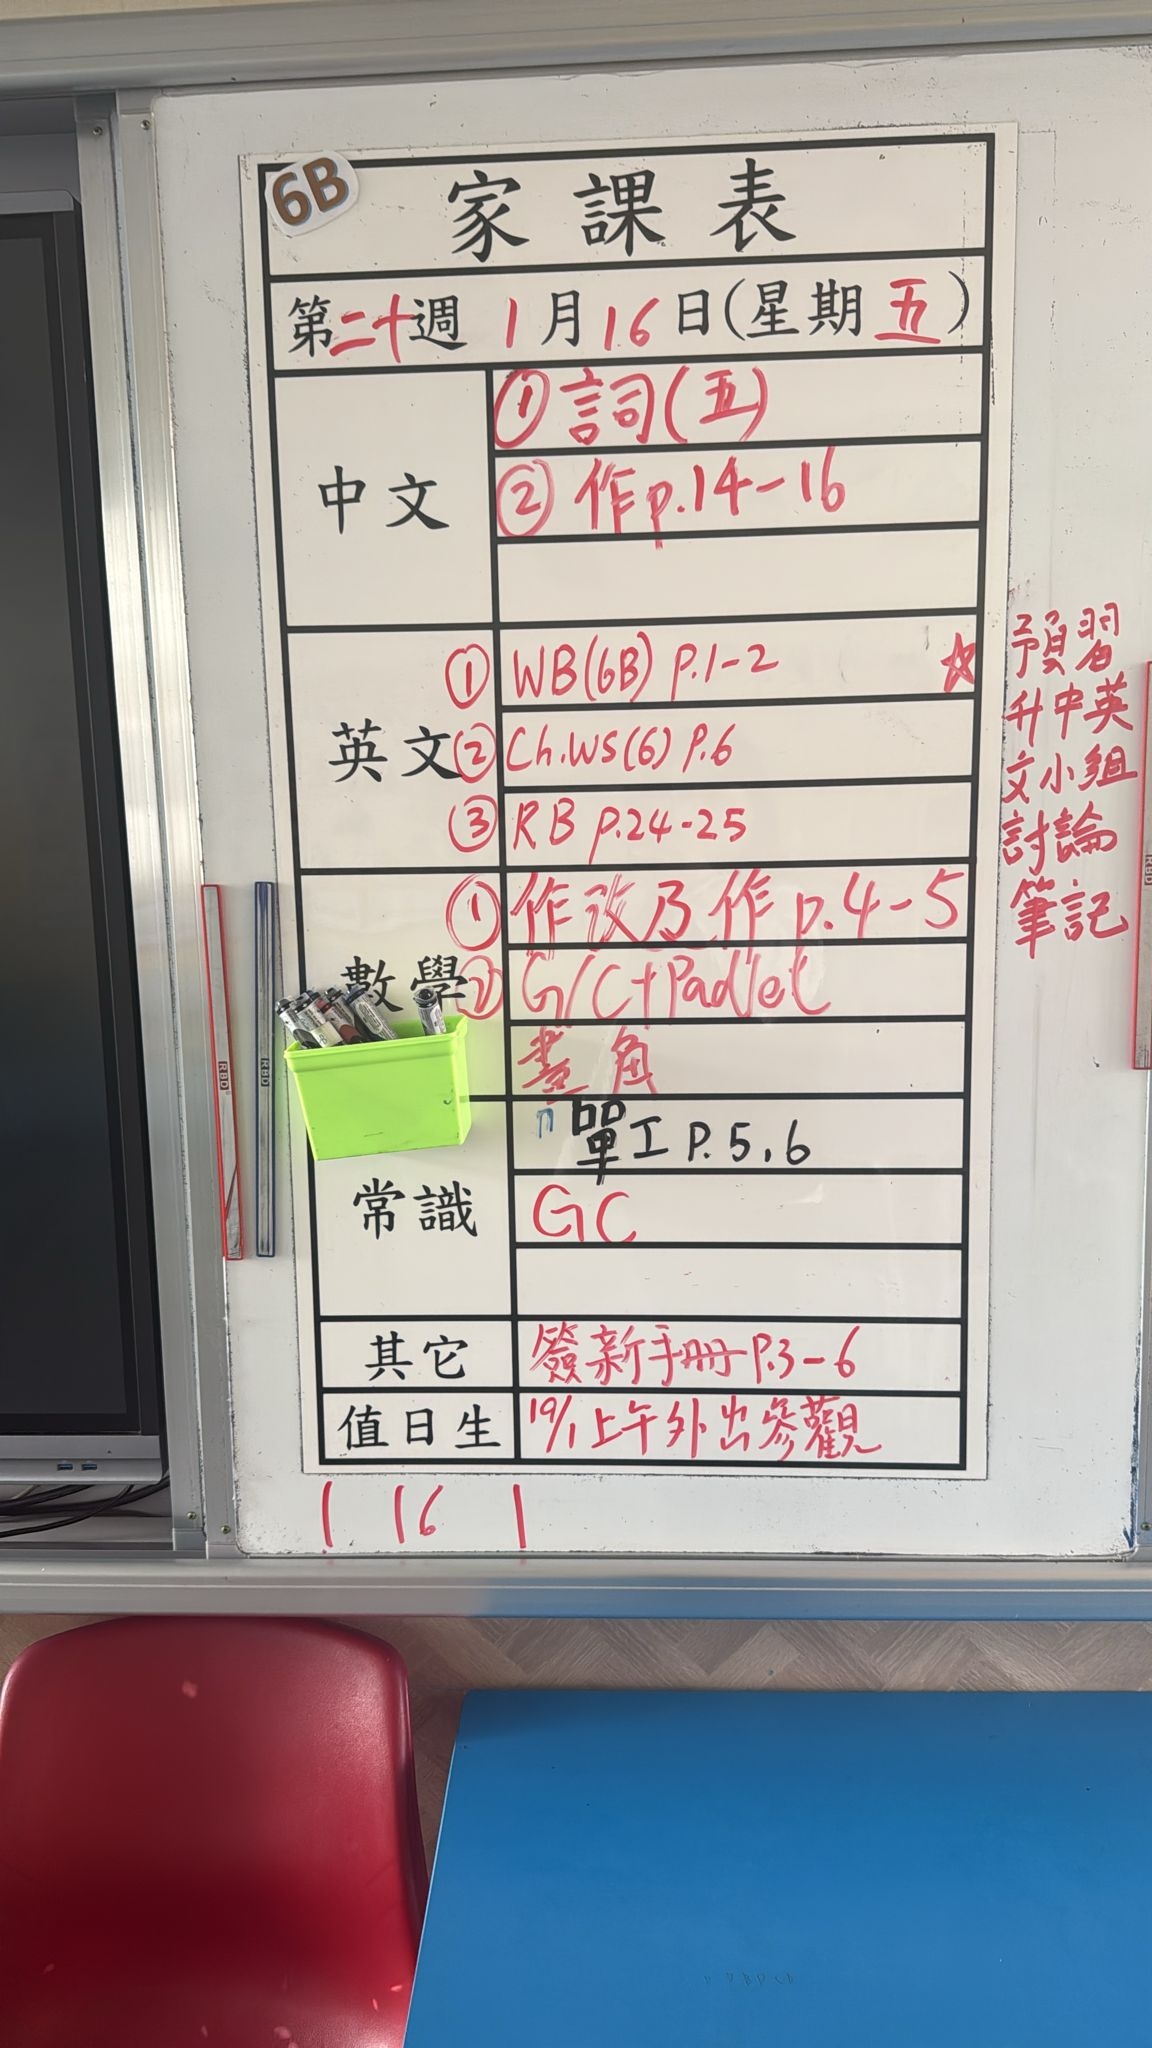 6B
家課表
第二十週 1月16日(星期五)
中文
① 詞(五)
② 作p.14-16
英文
① WB(6B) P.1-2
② Ch.WS(6) P.6
③ RB P.24-25
☆ 預習
升中英
文小組
討論
筆記
數學
① 作改及作 p.4-5
② G/C+Padlet
畫角
常識
單工 P.5,6
GC
其它
簽新手冊 P.3-6
值日生
19/1上午外出參觀
1 16 1
RBD
RBD
RBD